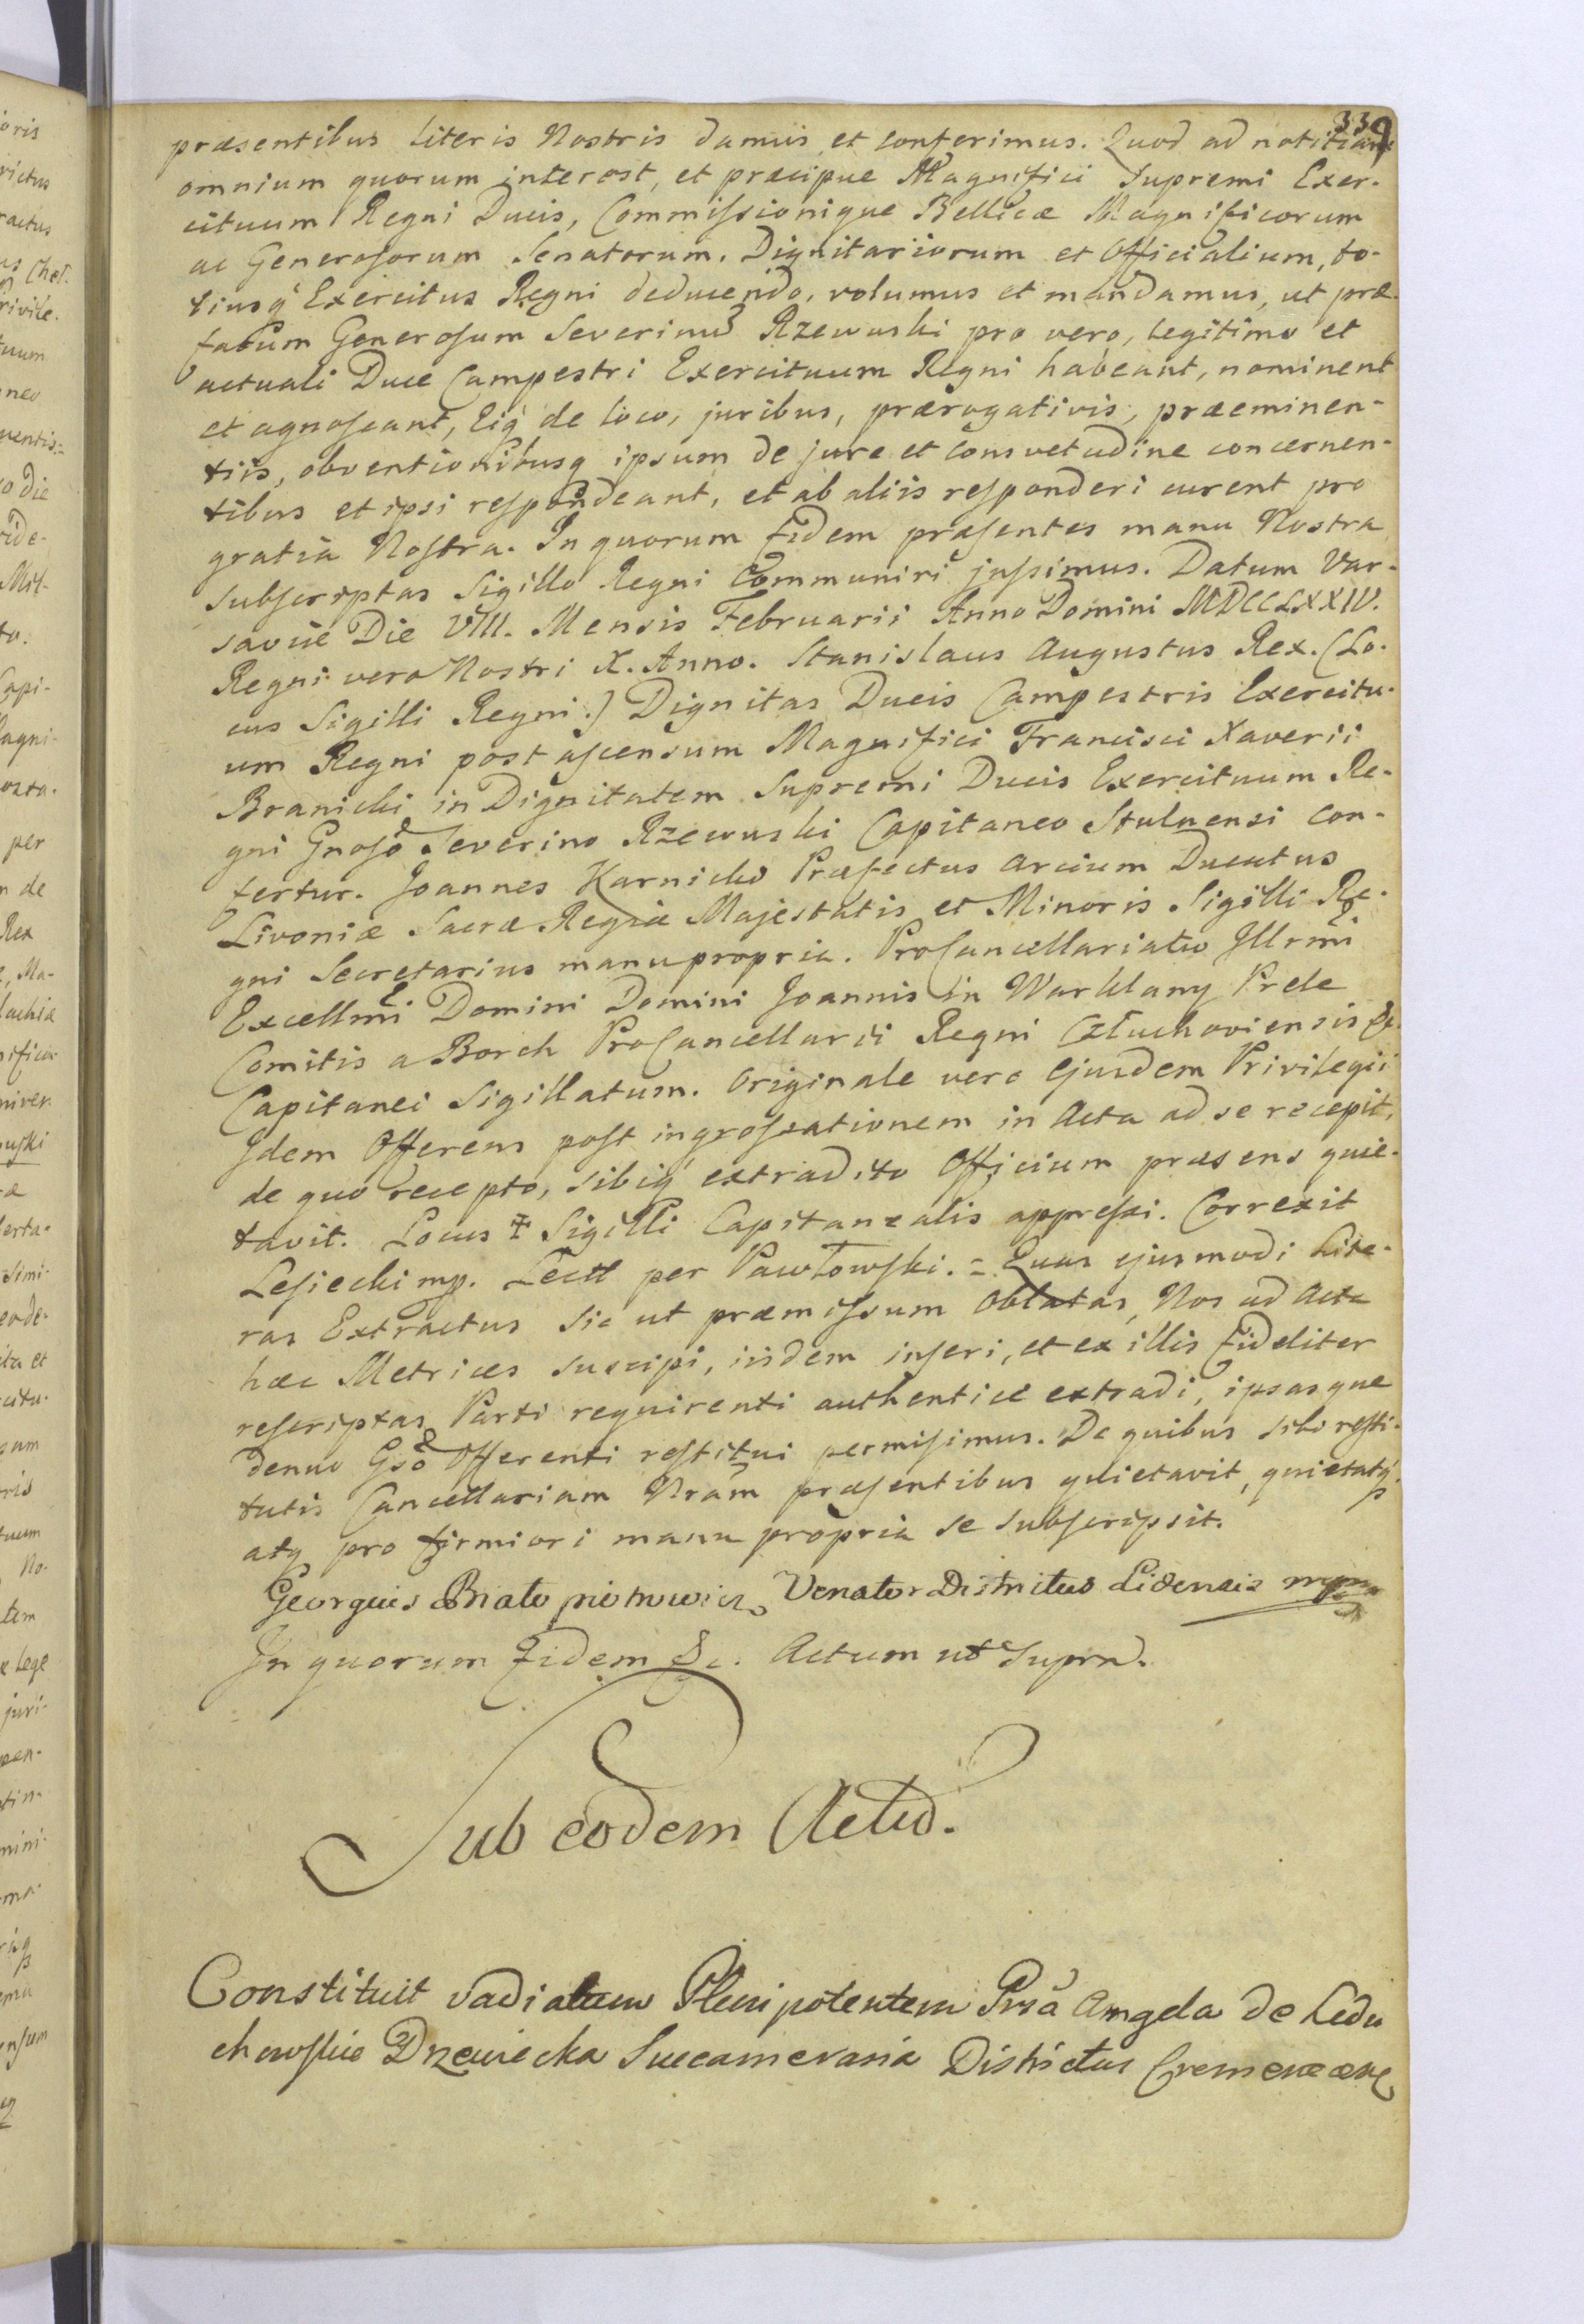 339
præsentibus Literis Nostris damus et conferimus. Quod ad notitiam
omnium quorum interest, et præcipue Magnifici Supremi Exer-
cituum Regni Ducis, Commiſsionique Bellicæ Magnificorum
ac Generoſorum Senatorum, Dignitariorum et Officialium, to-
tiusq́ Exercitus Regni deducendo, volumus et mandamus, ut præ-
fatum Generoſum Severinum Rzewuski pro vero, legitimo et
actuali Duce Campestri Exercituum Regni habeant, nominent
et agnoſcant, Eiq́ de loco, juribus, prærogativis, præeminen-
tiis, obventionibusq ipsum de jure et consvetudine concernen-
tibus et ipsi reſpondeant, et ab aliis reſponderi curent pro
gratia Noſtra. In quorum fidem præſentes manu Nostra
subſcriptas Sigillo Regni Communiri juſsimus. Datum Var-
saviæ Die VIII. Mensis Februarii Anno Domini MDCCLXXIV.
Regni vero Nostri X. Anno. Stanislaus Augustus Rex. (Lo-
cus Sigilli Regni:) Dignitas Ducis Campestris Exercitu-
um Regni post aſcensum Magnifici Francisci Xaverii
Branicki in Dignitatem Supremi Ducis Exercituum Re-
gni Gnoſo Severino Rzewuski Capitaneo Stulnensi con-
fertur. Joannes Karnicki Præfectus Arcium Ducatus
Livoniæ Sacræ Regiæ Majestatis et Minoris Sigilli Re-
gni Secretarius manupropria. ProCancellariatu Jllrmi
Excellmi Domini Domini Joannis in Warklany Prele
Comitis a Borch ProCancellarii Regni Człuchoviensis &c.
Capitanei Sigillatum. Originale vero Ejusdem Privilegii
Jdem Offerens poſt ingroſsationem in Acta ad se recepit,
de quo recepto, sibiq́ extradito Officium præsens quie-
tavit. Locus ‡ Sigilli Capitanealis appreſsi. Correxit
Leſiecki mp. Lect per Pawłowſki. = Quas ejusmodi Lite-
ras Extractus sic ut præmiſsum Oblatas, Nos ad Acta
hæc Metrices suscipi, iisdem inſeri, et ex illis fideliter
reſcriptas Parti requirenti authentice extradi, ipsasque
denuo Gso Offerenti reſtitui permiſimus. De quibus sibi reſti-
tutis Cancellariam Nram præſentibus quietavit, quietatq́
atq pro firmiori manu propria se subſcripsit.
Georgius Białopiotrowicz Venator Districtus Lidensis mp
In quorum Fidem &c. Actum ut Supra.
Sub eodem Actu.
Constituit vadiatum Plenipotentem Prsa Angela de Ledu
chowſkie Drzewiecka Succameraria Districtus Cremenecen